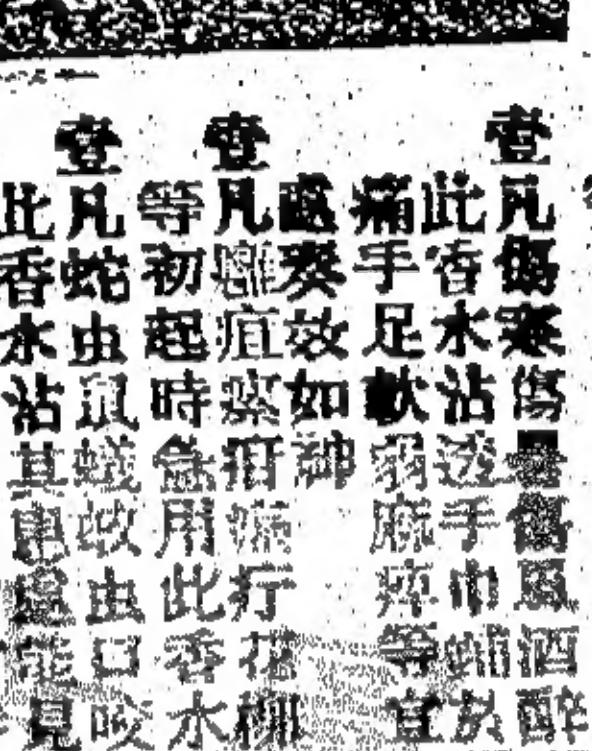 壹凡傷寒傷暑傷風酒醉
此香水沾透手巾
痛手足軟弱麻痺等宜
奏效如神
壹凡癰疽瘵疳疔花柳
等初起時用此香水
壹凡蛇虫鼠蟻蚊虫口咬
此香水沾其患處能見